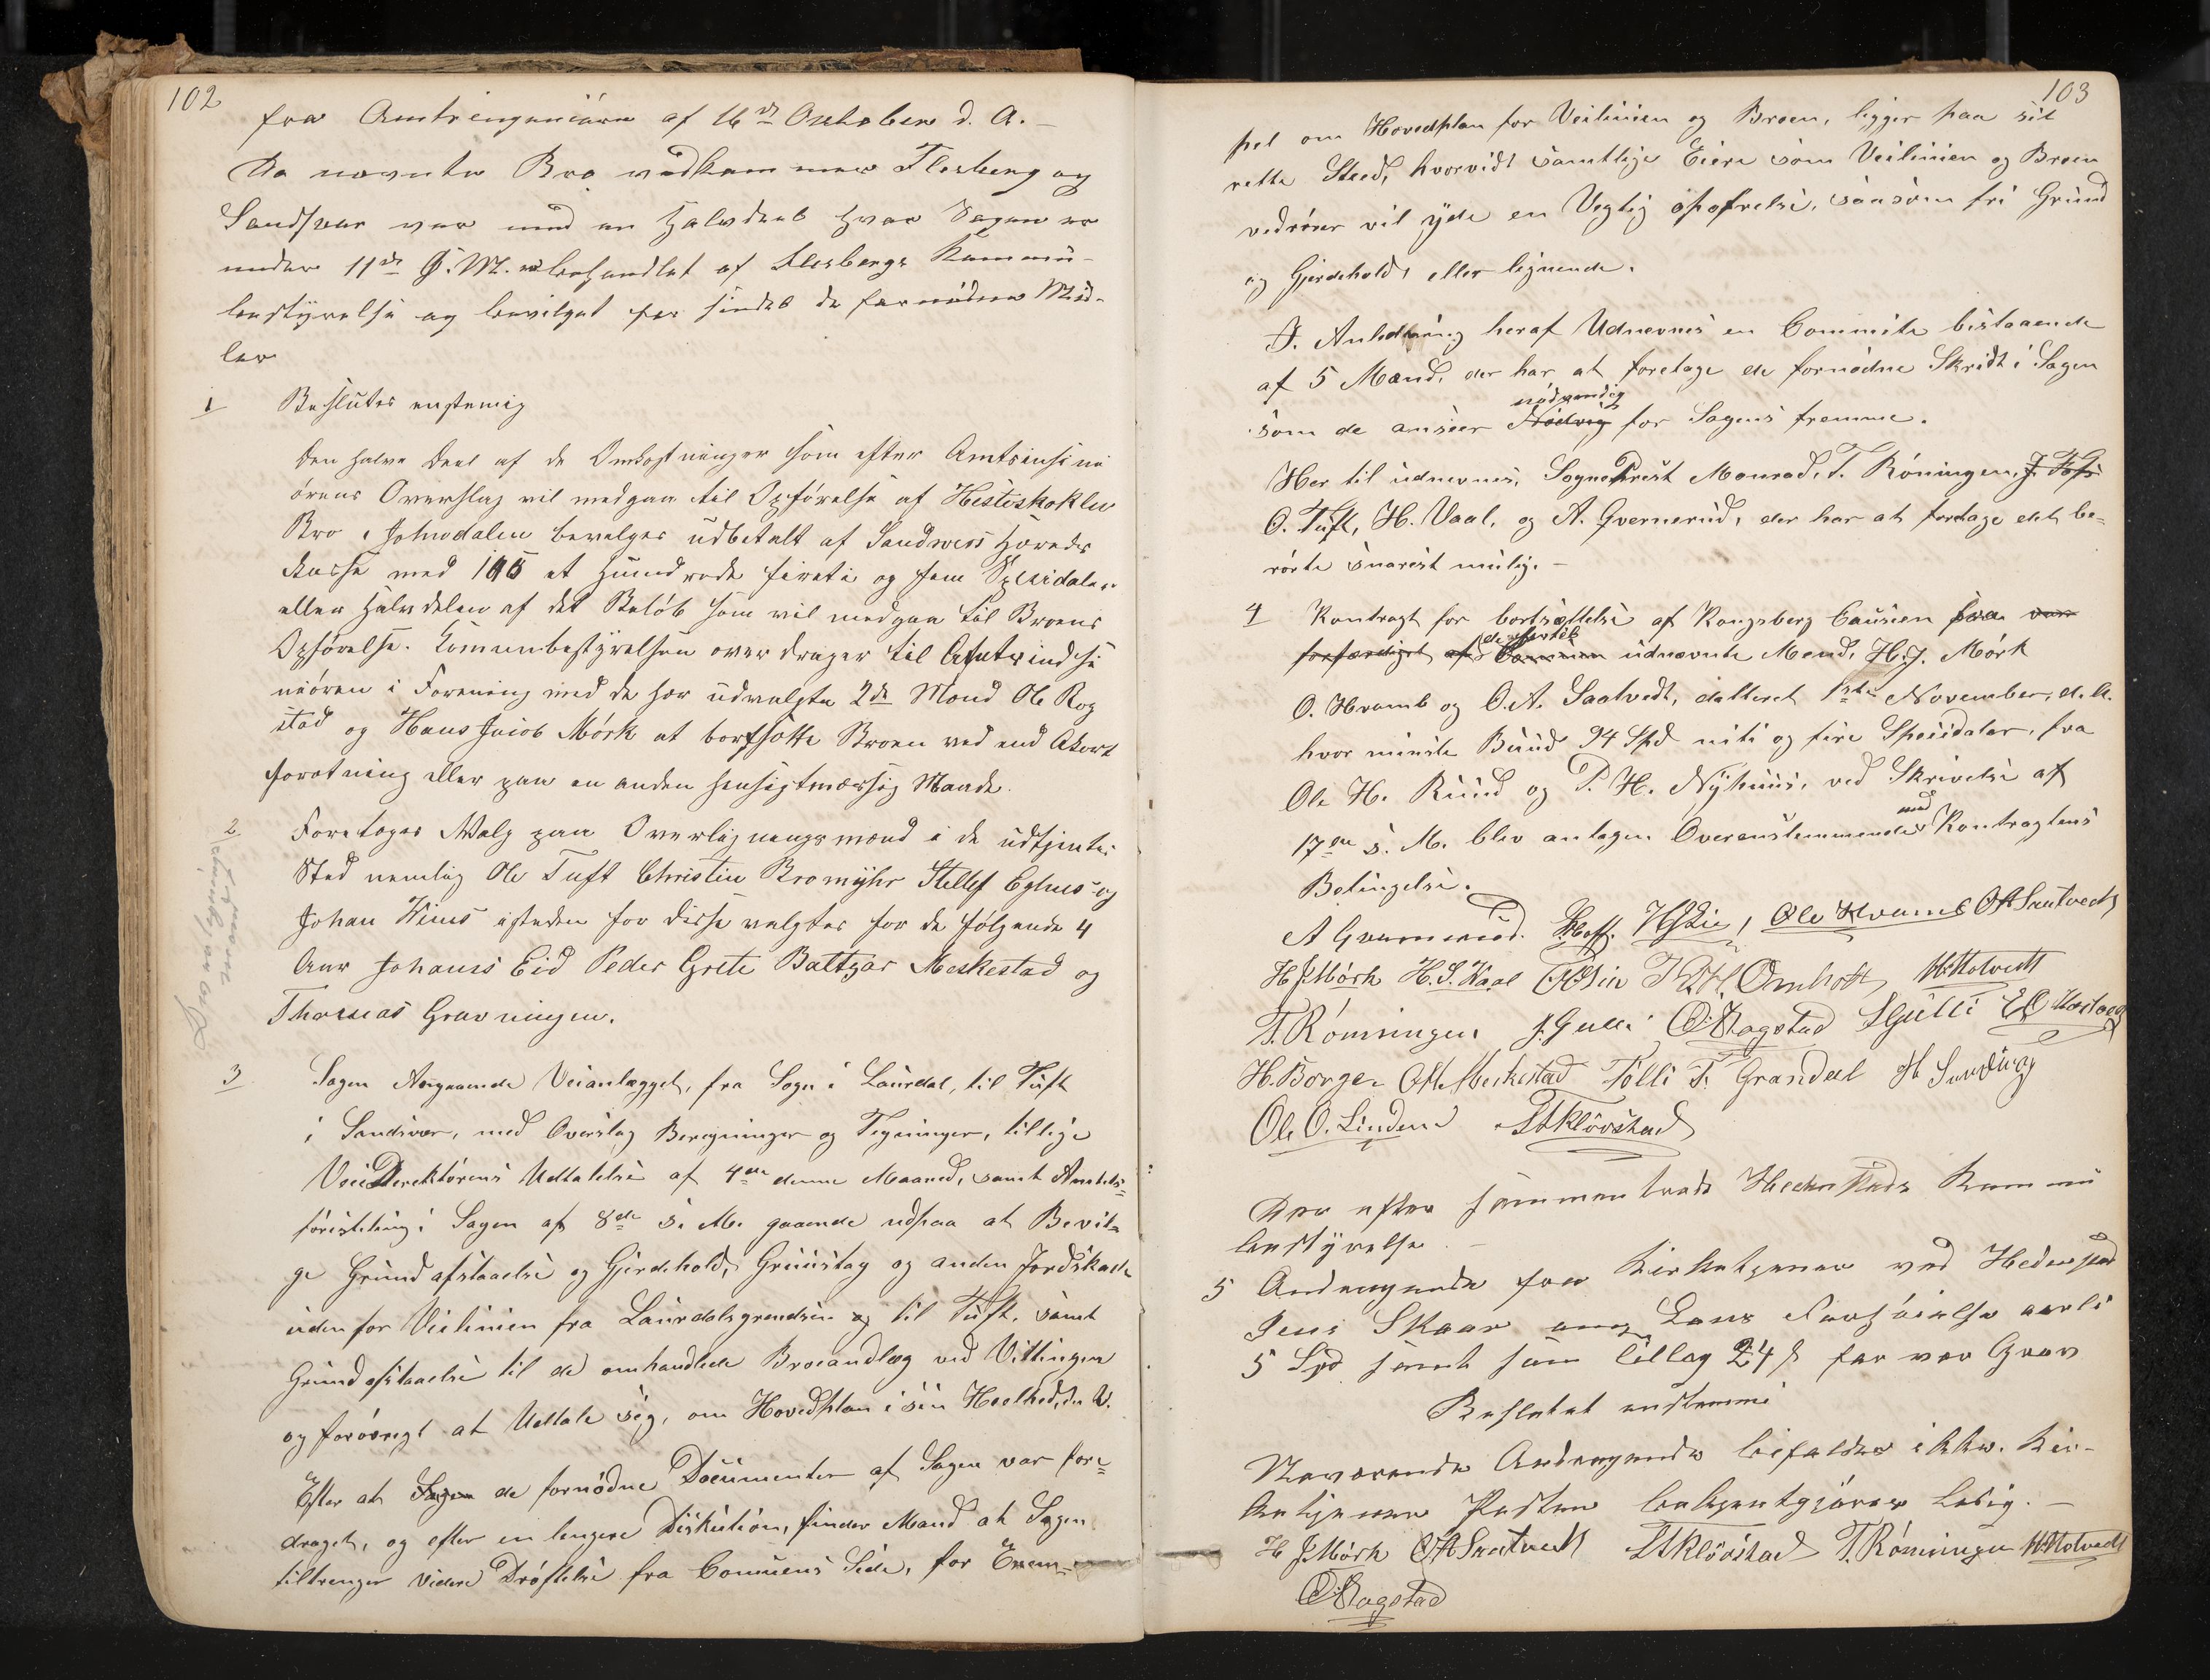 102
fra Amtsingeniören af 16de Oktober d. A. –
Da nævnte Bro vedkommer Flesberg og
Sandsvær var med en Halvdeel hver Sagen er
under 11de d. M. behandlet af Flesbergs Kommu-
bestyrelse og bevilget for sindel de fornödne Mid-
ler
1 Beslutes enstemig
den halve Deel af de Omkostninger som efter Amtsinsini
örens Overslag vil medgaa til Opförelse af Hesteskoklev
Bro i Johnsdalen bevalges udbetalt af Sandsvers Hereds
Kasse med 145 et Hundrede fireti og fem Spesidaler
eller Halvdelen af det Belöb som vil medgaa til Broens
Opförelse. Komunbestyrelsen over drager til Amtsindsi
niören i Forening med de her udvalgte 2de Mænd Ole Rog
stad og Hans Jacob Mörk at bortsätte Broen ved end Akort
foretning eller paa en anden hensigtmæssig Maade.
2 Foretages Walg paa Overligningsmænd i de udtjente
Sted nemlig Ole Tuft Christen Bromyhr Stellef Eglus og
Johan Wiius isteden for disse valgtes for de følgende 4
Aar Johanis Eid Peder Grete Baltzar Meskestad og
Thomas Gravningen.
3 Sagen Angaaende Veianlægget, fra Sogn i Laurdal, til Tuft
i Sandsvær, med Overslag Beregninger og Tegninger, tillige
VeiDirektörens Udtalelse af 4de denne Maaned, samt Amtets
föristiling i Sagen af 8de s. M. gaaende udpaa at Bevil-
ge Grund afstaaelse og Gjerdehold, Gruustag og anden Jordskade
uden for Veilinien fra Laurdalsgrendsen og til Tuft, samt
Grundafstaaelse til de omhandlede Broeandlæg ved Vittingen
og forövrigt at Udtale sig, om Hovedplan i sin Heelhed, da V.
Efter at Sagen de fornödne Documenter af Sagen var fore-
draget, og efter en lengere Diskution, finder Mand at Sagen
tiltrenger Videre Dröftelse fra Comuens Side, for Exem-
103
pel om Hovedplan for Veilinien og Broen, ligger paa sit
rette Sted, hvorvidt samtlige Eiere som Veilinien og Broen
vedrörer vil yde en Vegtig opofrelse, saasom fri Grund
og Gjerdehold, eller lignende.
I Anledning heraf Udnevnes en Commite bestaaende
af 5 Mænd, der har at foretage de fornödne Skridt i Sagen
nödvendig
som de anseer Nödvig for Sagens fremme.
Her til udnevnes, SognePrest Monrad, T. Röningen, J. Tofs
O. Tuft, H. Vaal, og A. Gvernerud, der har at fortage det be-
rörte snarest mulig. –
4 Kontragt for bortsættelse af Kongsberg Causien fra var
derfortil
forfærdiget af Comunen udnævnte Mend, H. J. Mörk
O. Hvamb og O. A. Saatvedt, datteret 1ste November, d. A.
hvor minste Buud 94 Spd niti og fire Speisidaler, fra
Ole H. Ruud og P. H. Nyhuus, ved Skrivelse af
med
17de s. M. blev antagen Overenstemmende Kontragtens
Betingelse.
A Gvernerud. Hoff. Ole Hvamb OASaatvedt
HJMörk H.S.Vaal Omholt HHolvedt
T. Römningen J. Gulli ORogstad SGulli
H. Borge OAMeskestad Tolli T. Grandal H Sundbÿ
Ole O. Linden STKlövstad
Der efter sammentrade Hedenstads Kommu
bestyrelse –
5 Andragende fra Kirketjener ved Hedenstad
Jens Skaar om Löns Forhöielse aarli
5 Spd samt som tillag 24 s for vær Grav
Beslutet enstemmi
Næværende Andragende bifaldes ikke. Kir-
ketjener Posten bekjentgjöres ledig. –
HJMörk OASaatvedt STKlövstad T. Römningen HHolvedt
ORogstad